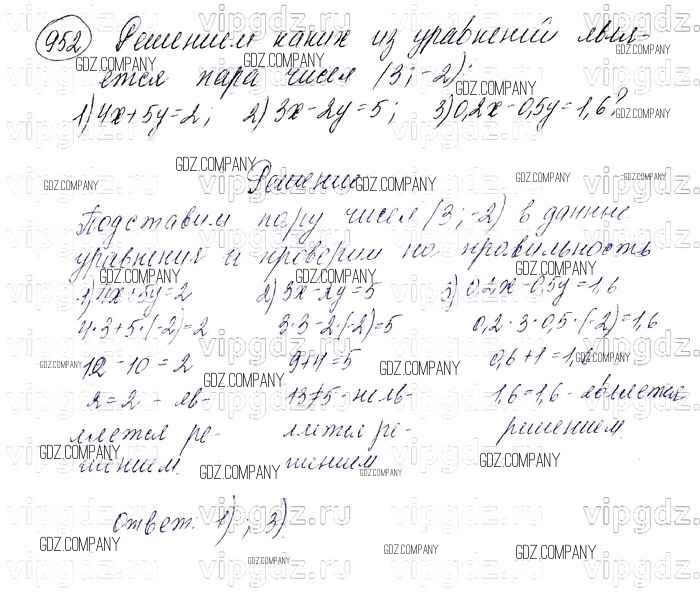 952 Решением каких из уравнений явля-
ется пара чисел (3;-2):
1) 4x+5y=2; 2) 3x-2y=5; 3) 0,2x-0,5y=1,6?
Решение
Подставим пару чисел (3;-2) в данные
уравнения и проверим на правильность
1) 4x+5y=2 2) 3x-2y=5 3) 0,2x-0,5y=1,6
4·3+5·(-2)=2 3·3-2·(-2)=5 0,2·3-0,5·(-2)=1,6
12-10=2 9+4=5 0,6+1=1,6
2=2 - яв- 13≠5 - не яв- 1,6=1,6 - является
ляется ре- ляется ре- решением.
шением. шением
Ответ: 1); 3)
GDZ.COMPANY
vipgdz.ru